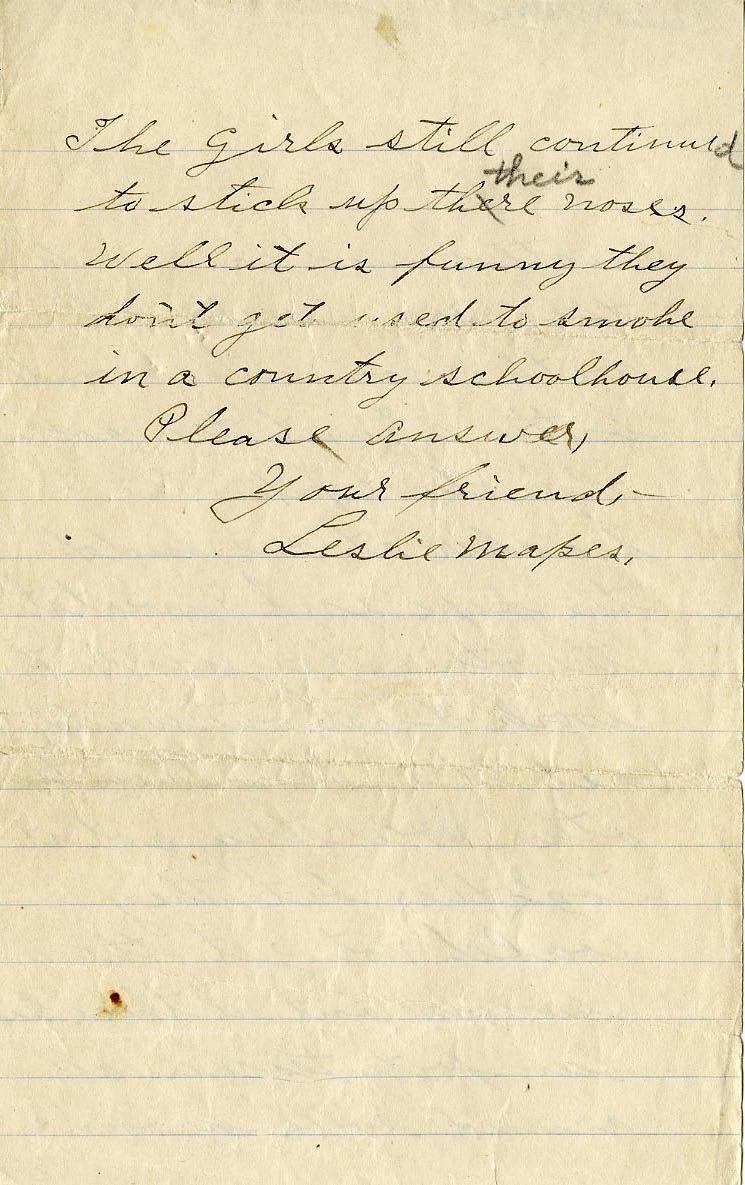 The Girls still continued
their
to stick up there noses.
Well it is funny they
don't get used to smoke
in a country schoolhouse.
Please answer,
Your friend,-
Leslie Mapes.